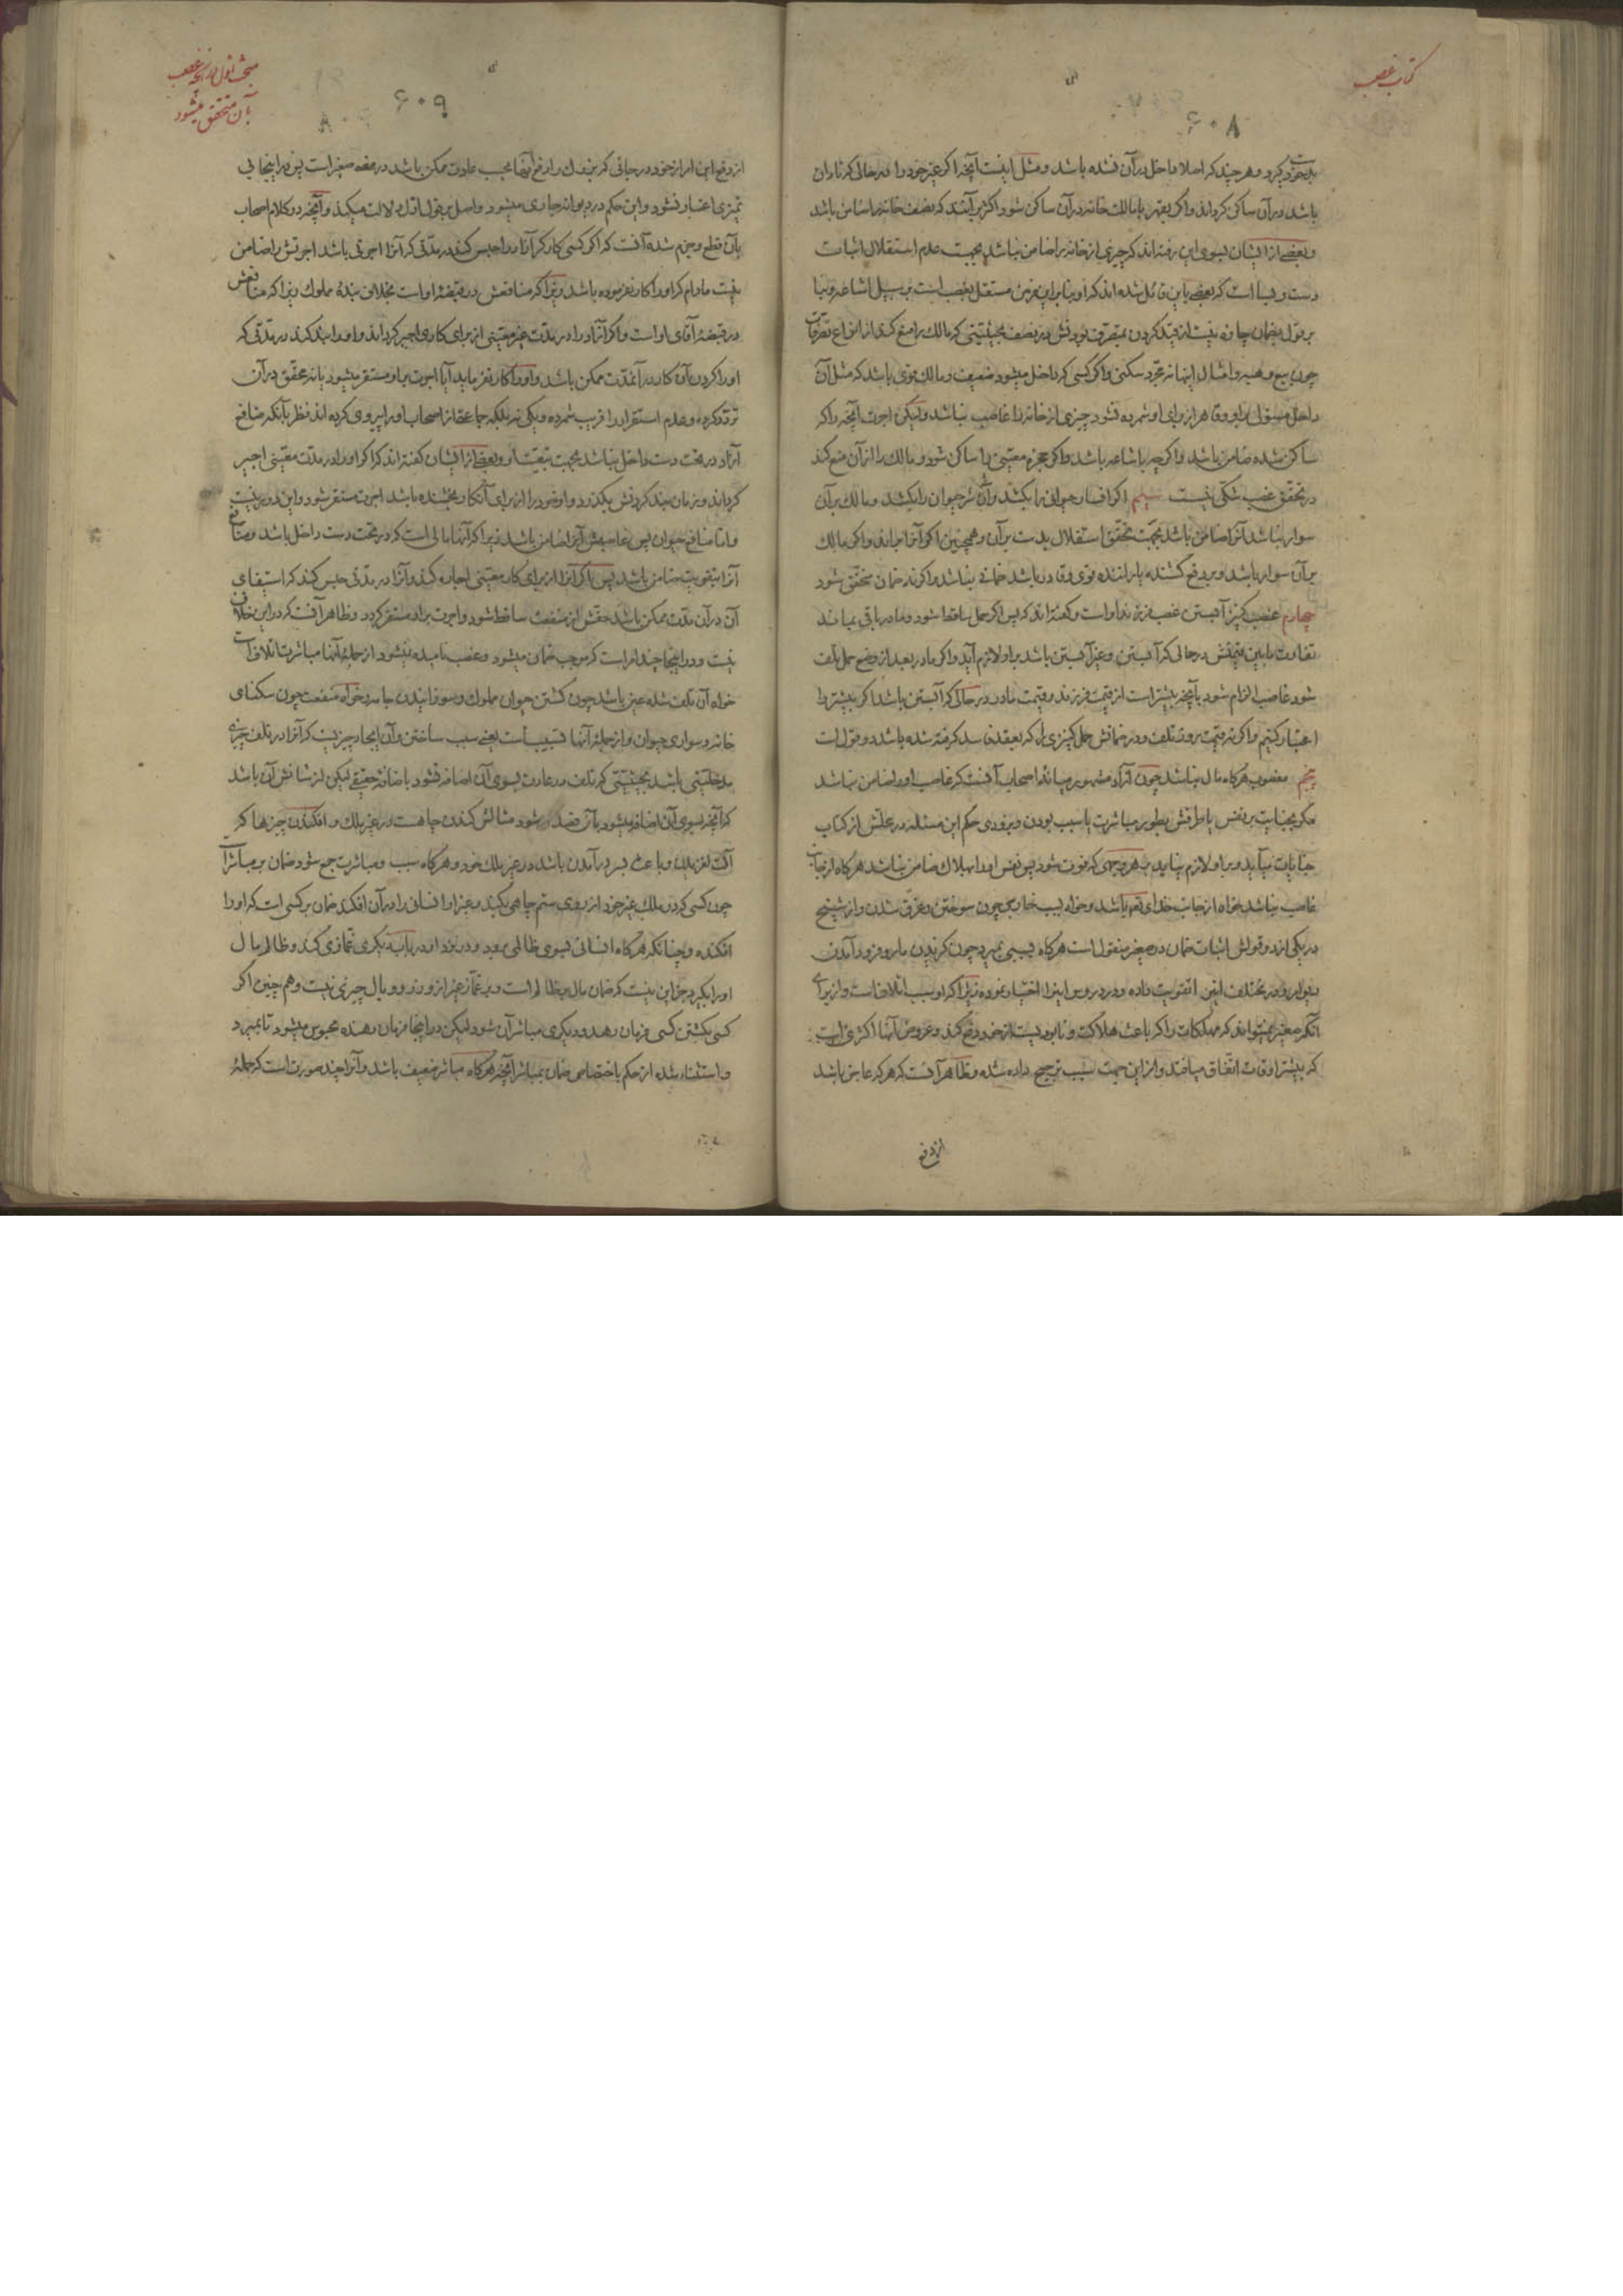 کتاب غصب
۶۰۸
باشد در آن ساکن گرداند و اگر بقهر با مالک خانه در آن ساکن شود اکثر برآنند که نصف خانه را ضامن باشد
و بعضی از ایشان بسوی این رفته‌اند که چیزی از خانه را ضامن نباشد بجهت عدم استقلال اثبات
چون بیع و هبه و امثال اینها نه مجرد سکنی و اگر کسی که داخل میشود ضعیف و مالک قوی باشد که مثل آن
ساکن شده ضامن باشد و اگر چه با شاعه باشد و اگر جزء معینی را ساکن شود و مالک را از آن منع کند
در تحقق غصب شکی نیست سیم اگر انسان حیوانی را بکشد و آن شر حیوان را بکشد و مالک بر آن
سوار نباشد آنرا ضامن باشد بجهت تحقق استقلال ید بر آن و همچنین اگر آنرا براند و اگر مالک
بر آن سوار باشد و بر دفع کشنده یا راننده قوی و قادر باشد ضمان نباشد و اگر نه ضمان متحقق شود
چهارم غصب کنیز آبستن غصب فرزند او است و گفته‌اند که پس اگر حمل ساقط شود و مادر باقی بماند
تفاوت مابین قیمتش در حالی که آبستن و غیر آبستن باشد بر او لازم آید و اگر مادر بعد از وضع حمل تلف
شود غاصب الزام شود بآنچه بیشتر است از قیمت فرزند و قیمت مادر در حالی که آبستن باشد اگر بیشتر را
اعتبار کنیم و اگر نه قیمت روز تلف و در ضمانش حمل کنیزی را که بعقد فاسد گرفته شده باشد دو قول است
پنجم مغصوب هرگاه مال نباشد چون آزاد مشهور میانه اصحاب آنست که غاصب او را ضامن نباشد
مگر بجنایت بر نفس یا طرفش بطور مباشرت یا سبب بودن و بزودی حکم این مسئله در محلش از کتاب
جنایات بیاید و بر او لازم نیاید بهر وجهی که فوت شود پس نفس او را بهلاک ضامن نباشد هرگاه از جانب
غاصب نباشد خواه از جانب خدای تعالی باشد و خواه بسبب خارجی چون سوختن و غرق شدن و از شیخ
در یکی از دو قولش اثبات ضمان در صغیر منقول است هرگاه بسببی بمیرد چون گزیدن مار و فرود آمدن
دیوار و در مختلف این را تقویت داده و در دروس اینرا اختیار نموده زیرا که او سبب اتلافست و از برای
آنکه صغیر نمیتواند که مهلکات را که باعث هلاکت و نابودیست از خود دفع کند و عروض آنها اکثری است
که بیشتر اوقات اتفاق میافتد و از این جهت سبب ترجیح داده شده و ظاهر آنست که هر که عاجز باشد
از دفع
مبحث اول در آنچه غصب
بآن متحقق میشود
۶۰۹
از دفع این امر از خود در جائی که بزرگ را دفع آنها بحسب عادت ممکن باشد در معنی صغیر است پس در اینجا بی
تمیزی اعتبار نشود و این حکم در دیوانه جاری میشود و اصل بر قول اول دلالت میکند و آنچه در کلام اصحاب
بآن قطع و جزم شده آنست که اگر کسی کارگر آزاد را حبس کند در مدتی که آنرا اجرتی باشد اجرتش را ضامن
نیست مادام که او را کار نفرموده باشد زیرا که منافعش در قبضه او است بخلاف بنده مملوک زیرا که منافعش
در قبضه آقای او است و اگر آزاد را در مدت غیر معینی از برای کاری اجیر گرداند و او را بند کند در مدتی که
او را کردن آن کار در آنمدت ممکن باشد و او را کار نفرماید آیا اجرت بر او مستقر میشود یا نه محقق در آن
تردد کرده و عدم استقرار را قریب شمرده و یکی نه بلکه جماعتی از اصحاب او را پیروی کرده‌اند نظر بآنکه منافع
آزاد در تحت دست داخل نباشد بجهت تبعیت او و بعضی از ایشان گفته‌اند که اگر او را در مدت معینی اجیر
گرداند و زمان بند کردنش بگذرد و او خود را از برای آنکار بخشنده باشد اجرت مستقر شود و این دور نیست
و اما منافع حیوان پس غاصبش آنرا ضامن باشد زیرا که آنها مالی است که در تحت دست داخل باشد و منافع
آنرا بتفویت ضامن باشد پس اگر آنرا از برای کار معینی اجاره کند و آنرا در مدتی حبس کند که استیفای
آن در آن مدت ممکن باشد حقش از منفعت ساقط شود و اجرت بر او مستقر گردد و ظاهر آنست که در این خلافی
نیست و در اینجا چند امر است که موجب ضمان میشود و غصب نامیده نمیشود از جمله آنها مباشرت اتلاف است
خواه آن تلف شده عین باشد چون کشتن حیوان مملوک و سوزانیدن جامه و خواه منفعت چون سکنای
خانه و سواری حیوان و از جمله آنها تسبیب است یعنی سبب ساختن و آن ایجاد چیزیست که آنرا در تلف چیزی
مدخلیتی باشد بحیثیتی که تلف در عادت بسوی آن اضافه نشود باضافه حقیقی لیکن از شانش آن باشد
که آنچه بسوی آن اضافه میشود بآن قصد کرده شود مثالش کندن چاهست در غیر ملک و افکندن چیزها که
آلت لغزیدن و باعث بسر در آمدن باشد در غیر ملک خود و هرگاه سبب و مباشرت جمع شود ضمان بر مباشر است
چون کسی که در ملک غیر خود از روی ستم چاهی بکند و غیر او انسانی را در آن افکند ضمان بر کسی است که او را
افکنده و چنانکه هرگاه انسانی بسوی ظالمی برود و در نزد او در باب دیگری غمازی کند و ظالم مال
او را بگیرد جز این نیست که ضمان مال بر ظالم است و بر غماز غیر از وزر و وبال چیزی نیست و هم چنین اگر
کسی بکشتن کسی فرمان دهد و دیگری مباشر آن شود لیکن در اینجا فرمان دهنده محبوس میشود تا بمیرد
و استثناء شده از حکم باختصاص ضمان بمباشر آنچه هرگاه مباشر ضعیف باشد و آنرا چند صورتست که جمله